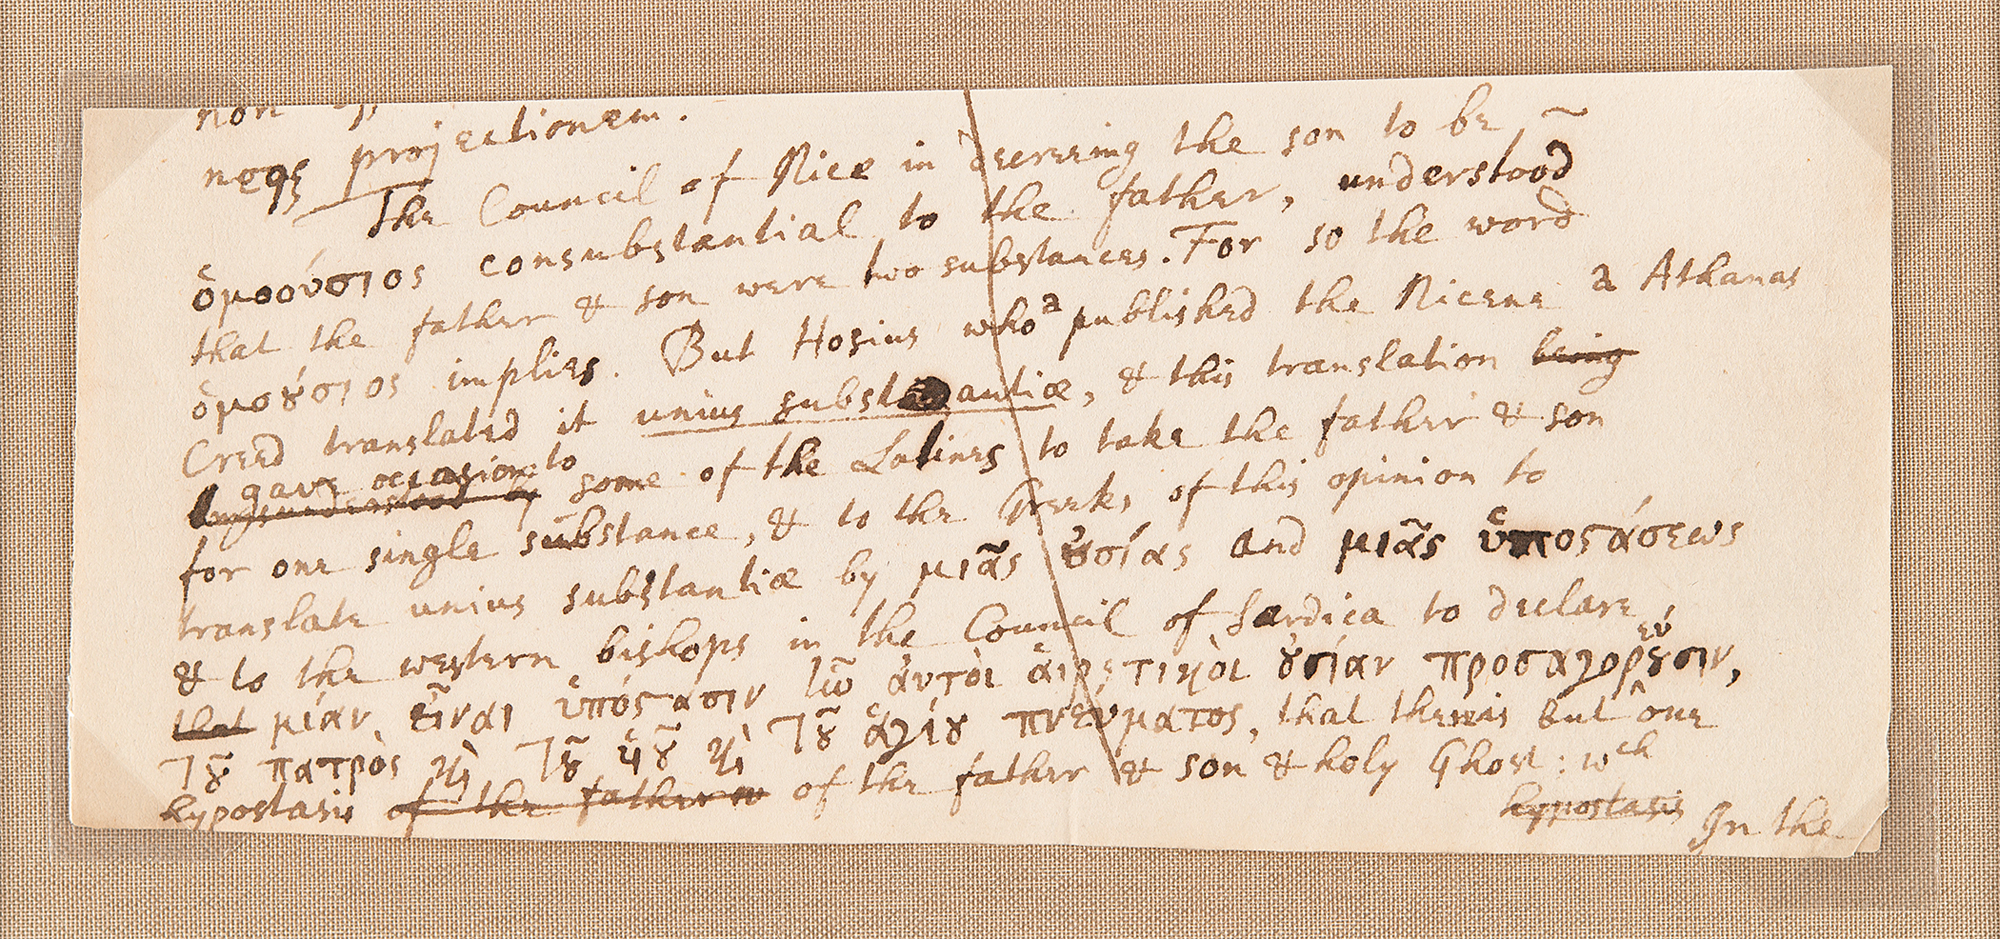 non
neqꝫ projectionem.
The Council of Nice in decreeing the son to be
ὁμοούσιος consubstantial to the father, understood
that the father & son were two substances. For so the word
ὁμοȣ́σιος implies. But Hosius who ᵃ published the Nicene a Athanas
Creed translated it unius substantiæ, & this translation being
& gave occasion to
misunderstood by some of the Latines to take the father & son
for one single substance, & to the Greeks of this opinion to
translate unius substantiæ by μιᾶς ȣ̓σίας and μιᾶς ὑποϛάσεως
& to the western bishops in the Council of Sardica to declare,
that μίαν εἶναι ὑπόϛασιν ἣν ἀυτὸι ἁιρετικὸι ȣ̓σίαν προσαγορέυȣσιν,
τȣ͂ πατρὸς ϗ̀ τȣ͂ ὑȣ͂ ϗ̀ τȣ͂ ἁγίȣ πνέυματος, that there is but one
hypostasis of the father of the father & son & holy Ghost: wᶜʰ
hypostasis In the